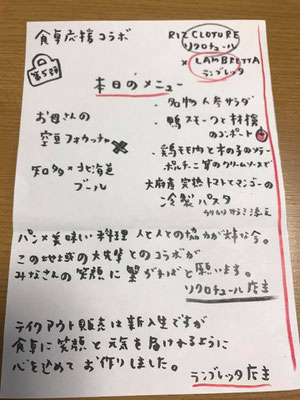 食卓応援コラボ
第5弾
RIZ CLOTURE
リクロチュール
×
LAMBRETTA
ランブレッタ
本日のメニュー
お母さんの
空豆フォカッチャ
知多×北海道
ブール
・名物人参サラダ
・鴨スモークと林檎
のコンポート
・鶏モモ肉と木の子のソテー
ポルチーニ茸のクリームソースで
大府産完熟トマトとマンゴーの
冷製パスタ
パン×美味しい料理 人と人との協力が大事な今。
この地域の大先輩とのコラボが
みなさんの笑顔に繋がればと願います。
リクロチュール店主
テイクアウト販売は新入生ですが
食卓に笑顔と元気を届けれるように
心を込めてお作りしました。
ランブレッタ店主